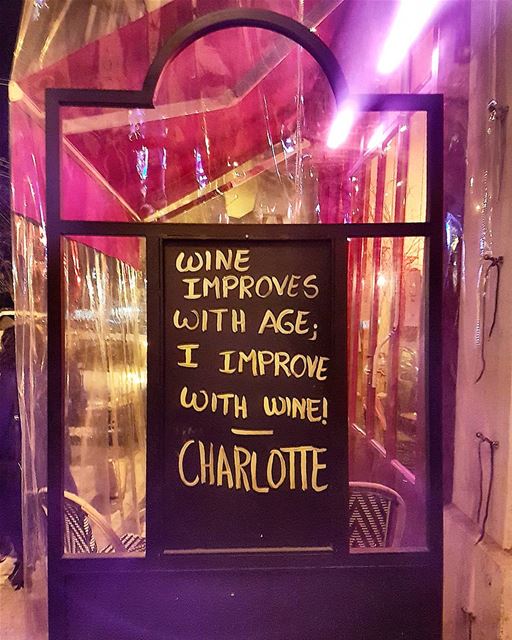 WINE
IMPROVES
WITH AGE;
I IMPROVE
WITH WINE!
CHARLOTTE